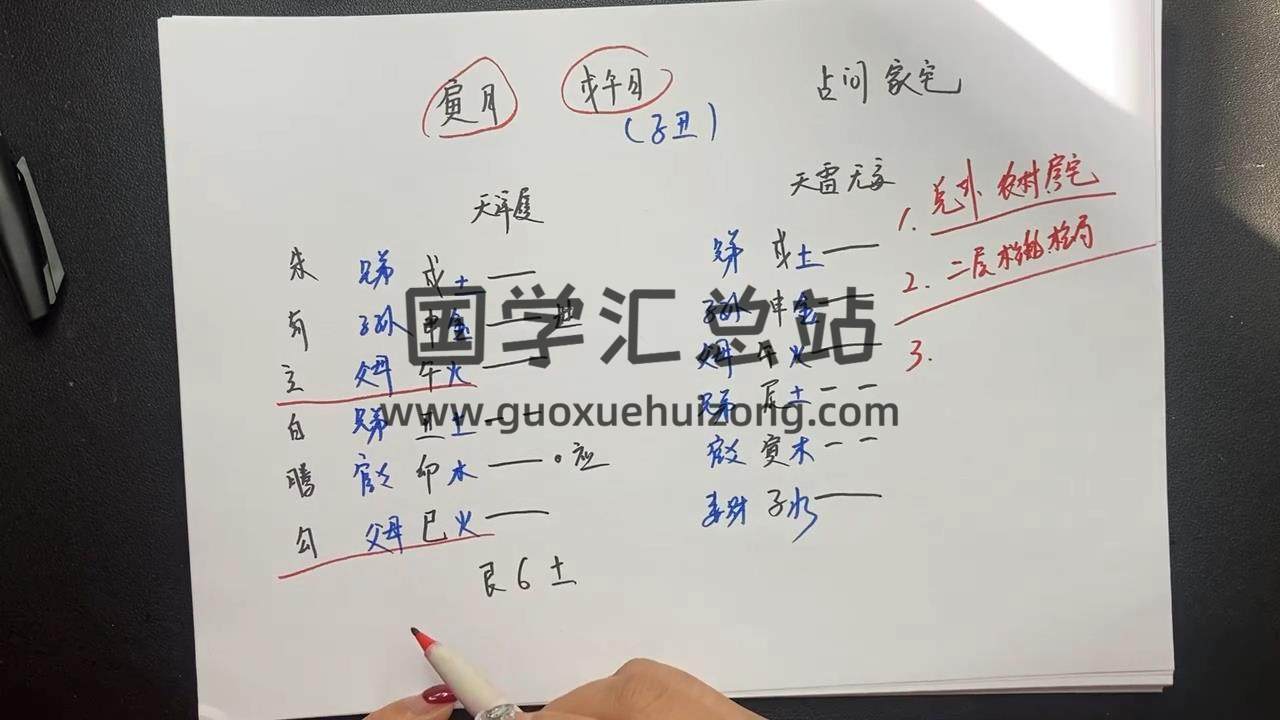 寅月 戊午日 占问 家宅
(子丑)
天泽履 天雷无妄
朱 兄弟 戌土
子孙 申金 世
玄 父母 午火
白 兄弟 丑土
腾 官 卯木 应
勾 父母 巳火
艮6土
兄弟 戌土
子孙 申金
父母 午火
兄弟 辰土
官 寅木
妻财 子水
1. 兑外 农村房宅
2. 二层 格局
3.
国学汇总站
www.guoxuehuizong.com